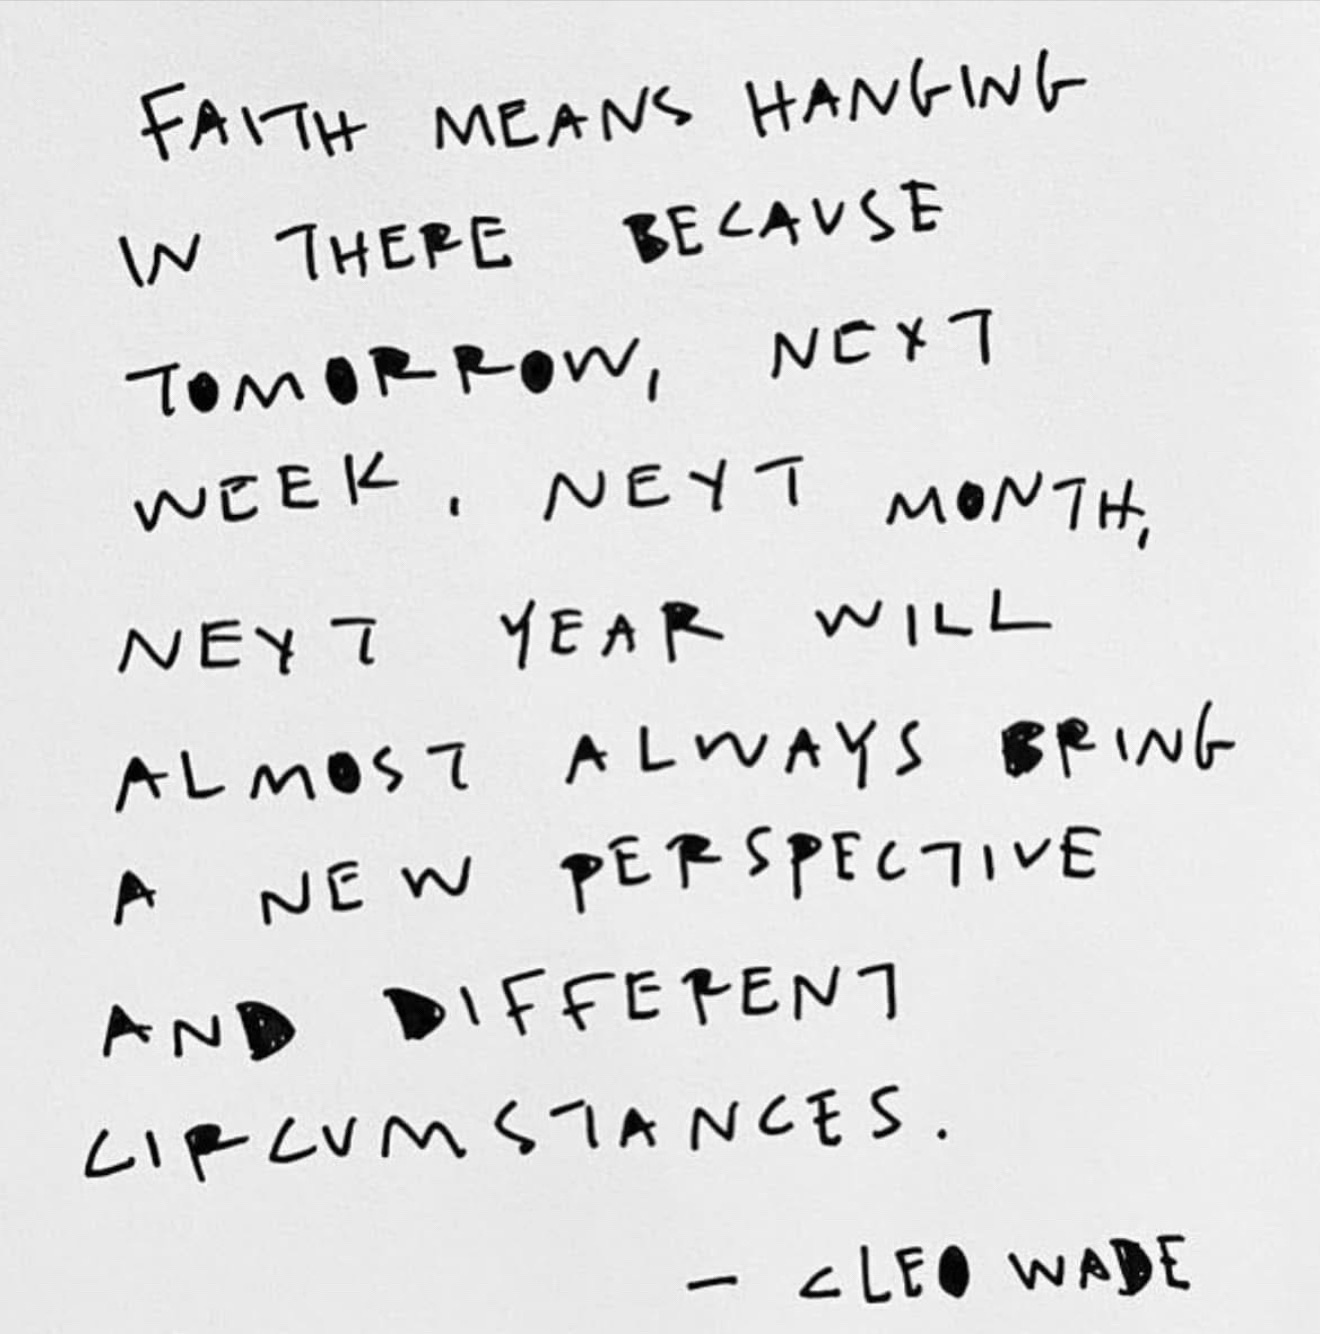 FAITH MEANS HANGING
IN THERE BECAUSE
TOMORROW, NEXT
WEEK, NEXT MONTH,
NEXT YEAR WILL
ALMOST ALWAYS BRING
A NEW PERSPECTIVE
AND DIFFERENT
CIRCUMSTANCES.
— CLEO WADE